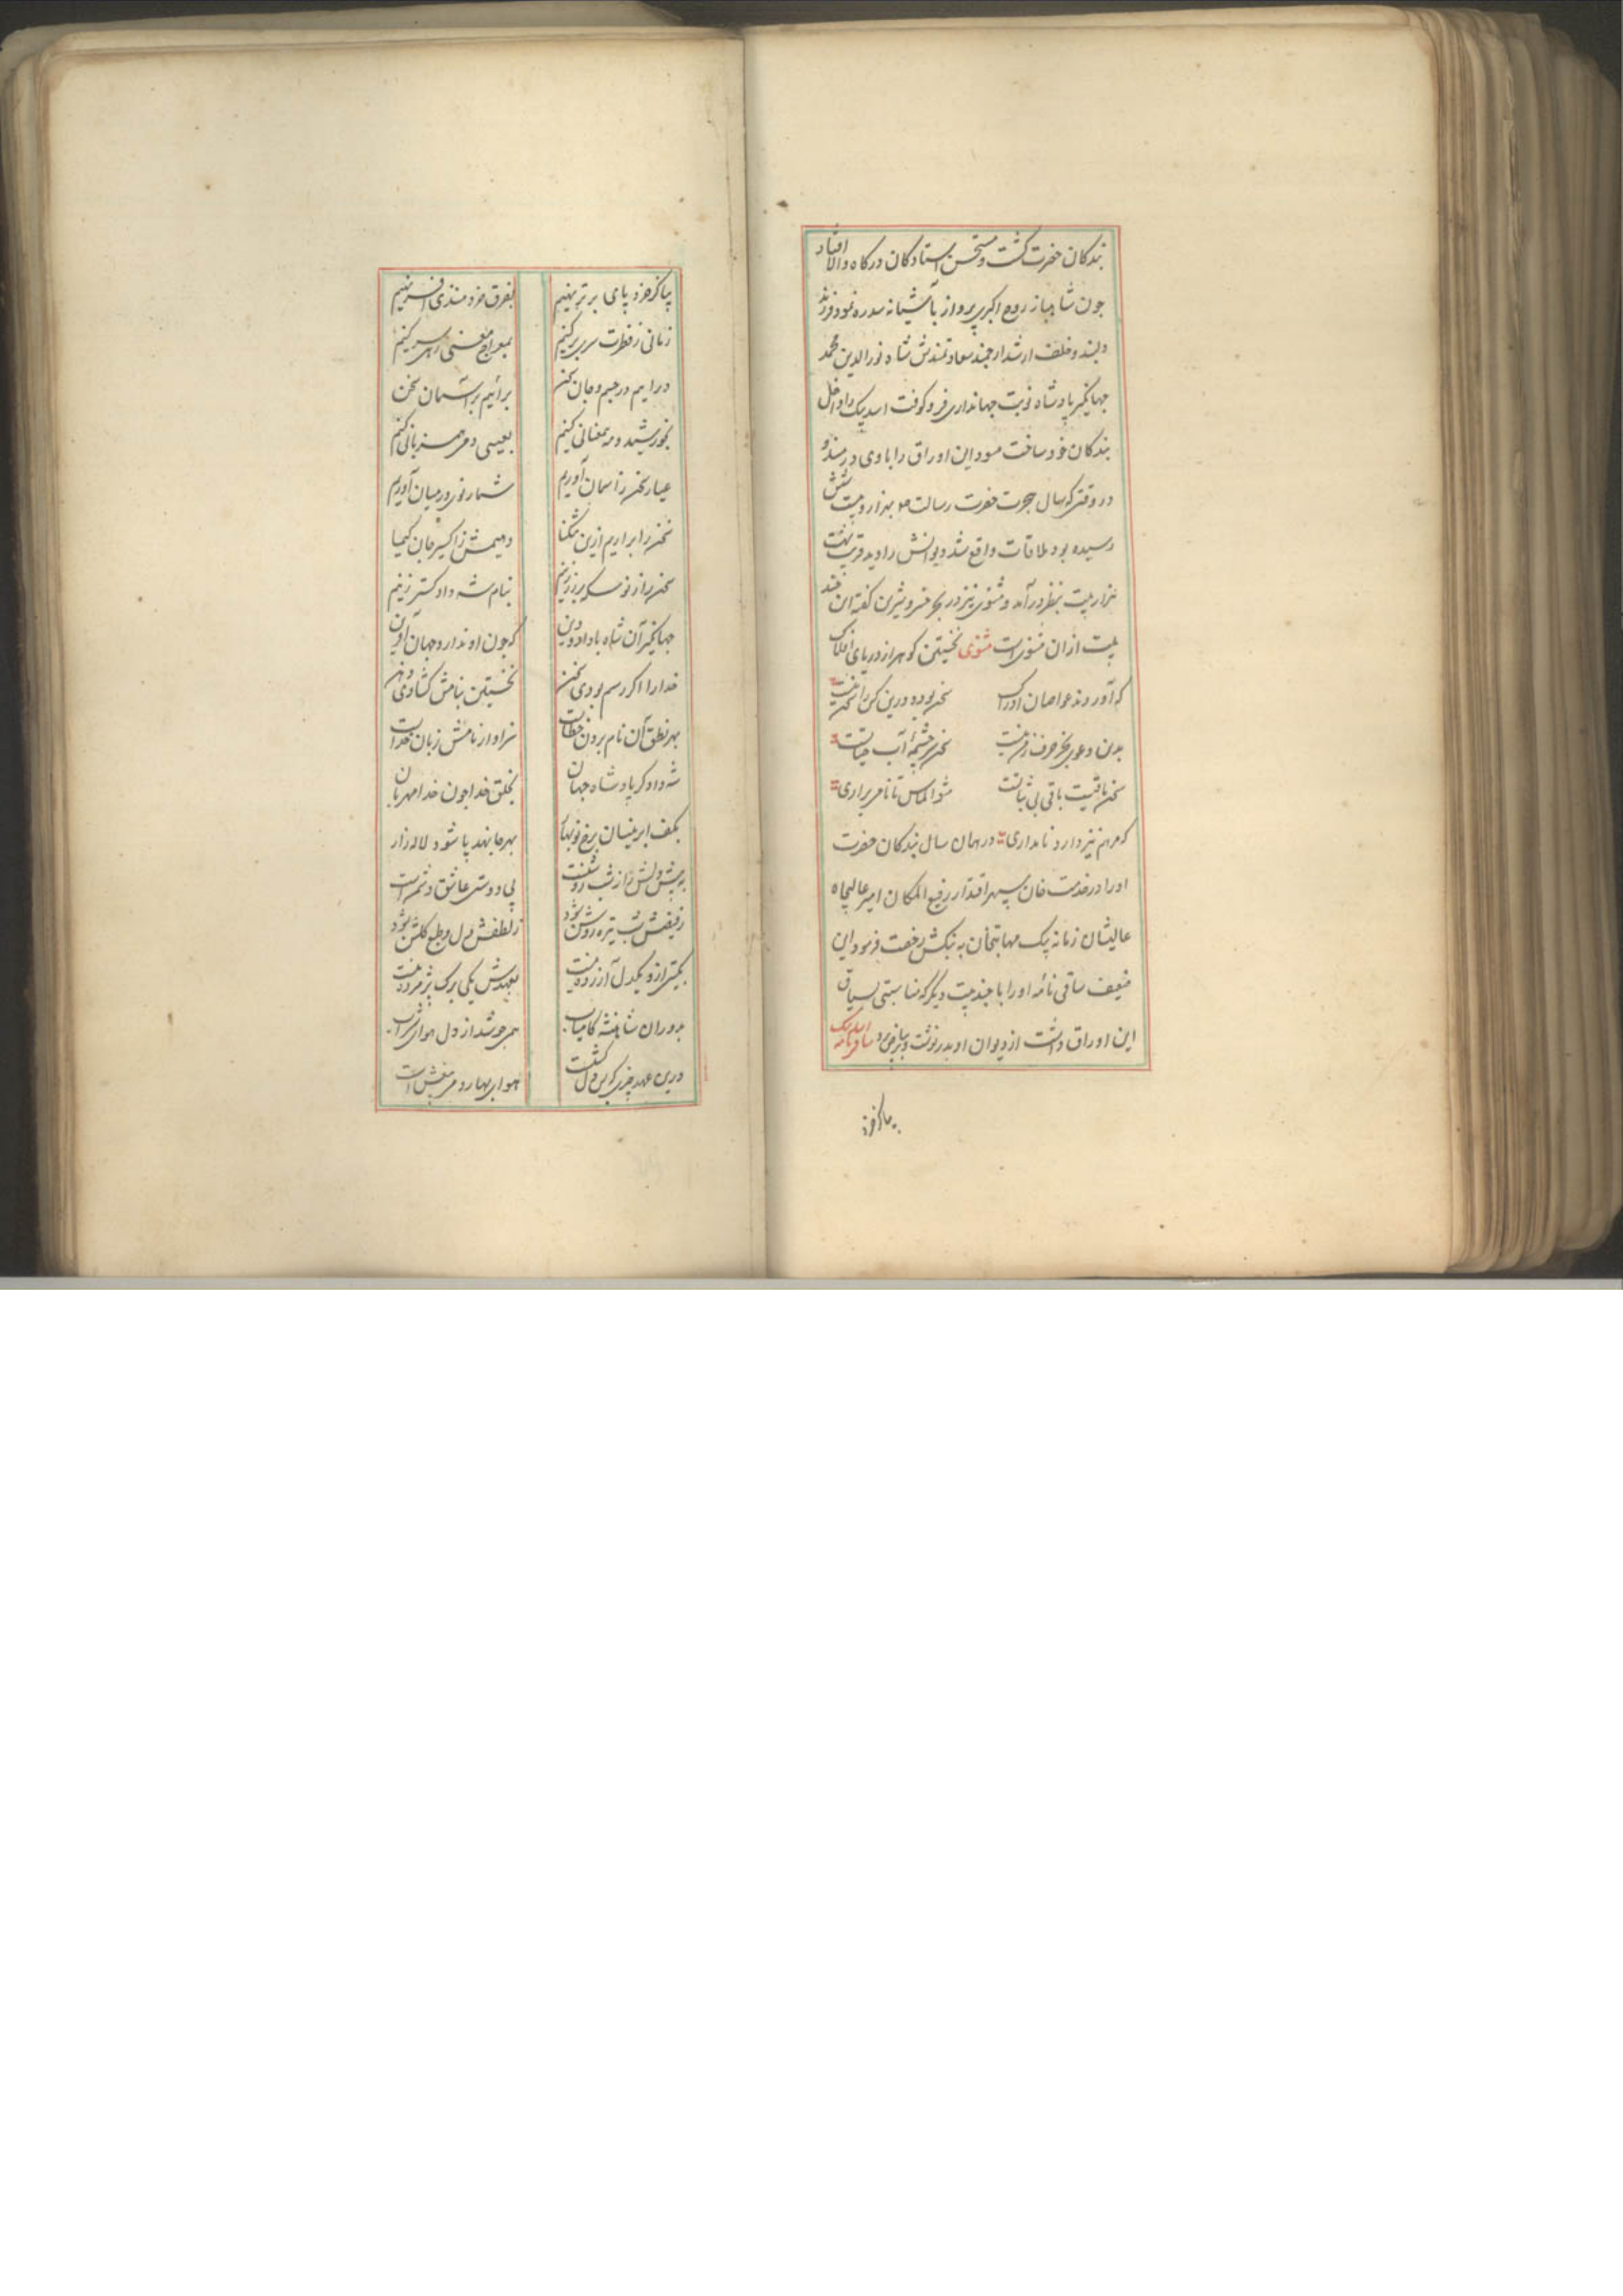 بندکان حضرت کشت و مستحسن استادکان درکاه والا افتاد
جون شاهباز روح اکبری پرواز باشیانه سدره نمود فرزند
دلبند و خلف ارشد ارجمند سعادتمندش شاه نورالدین محمد
جهانکیر پادشاه نوبت جهانداری فروکوفت اسد بیک را داخل
بندکان خود ساخت مسود این اوراق را با وی در مندو
در وقتی که سال هجرت حضرت رسالت بهزار و بیست شش
رسیده بود ملاقات واقع شد دیوانش را دید قریب بهشت
هزار بیت بنظر درآمد و مثنوی نیز در بحر خسرو شیرین کفته این چند
بیت ازان مثنوی است مثنوی نخستین کوهر از دریای افلاک
که آوردند غواصان ادراک سخن بود و درین کس را سخن نیست
بدین دعوی بجز حرف زدن نیست سخن سرچشمه آب حیاتست
سخن باقیست باقی بی ثباتست مشو الماس تا نامی براری
که مرهم نیز دارد نامداری در همان سال بندکان حضرت
او را در خدمت خان سپهر اقتدار رفیع المکان امیر عالیجاه
عالیشان زمانه بیک مهابتخان به بنکش رخصت فرمود این
ضعیف ساقی نامه او را با چند بیت دیکر که مناسبتی بسیاق
این اوراق داشت از دیوان او بدر نوشت و بر بیاض برد ساقی نامه اسد بیک
بیا کز خرد
بیا کز خرد پای برتر نهیم بفرق خردمندی افسر نهیم
زمانی ز فطرت سری برکنیم بمعراج معنی رهی سر کنیم
درایم در جسم و جان سخن برآئیم بر آسمان سخن
بخورشید و مه همعنانی کنیم بعیسی دمی همزبانی کنیم
عیار سخن زاسمان آوریم شمار نوی در میان آوریم
سخن را براریم ازین تنکنا دهیمش ز اکسیر جان کیمیا
سخن را ز نو سکه بر زر زنیم بنام شه دادکستر زنیم
جهانکیر آن شاه با داد و دین که چون او ندارد جهان آفرین
خدا را اکر رسم بودی سخن نخستین بنامش کشادی دهن
بهر نطق آن نام بردن خطاست سزاوار نامش زبان خداست
شه دادکر پادشاه جهان بخلق خدا جون خدا مهربان
بکف ابر نیسان برخ نوبهار بهر جا نهد پا شود لاله زار
به پیش دلش راز شب روشنست پی دوستی عاشق دشمن است
ز فیضش شب تیره روشن شود ز لطفش دل و طبع کلشن شود
بکیتی ازو یکدل آزرده نیست بعهدش یکی برک پژمرده نیست
بدوران شاهنشه کامیاب همی جوشد از دل هوای شراب
درین عهد چیزی که این دلکشست هوای بهار و می بیغش است